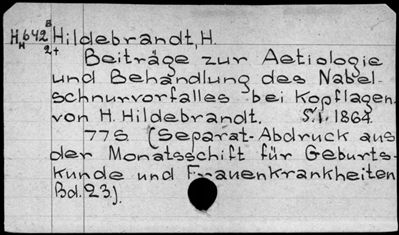 H 642 B Hildebrandt, H.
H 2+
Beiträge zur Aetiologie
und Behandlung des Nabel-
schnurvorfalles bei Kopflagen.
von H. Hildebrandt. 5.1.1864
77S (Separat-Abdruck aus
der Monatsschift für Geburts-
kunde und Frauenkrankheiten
Bd. 23).